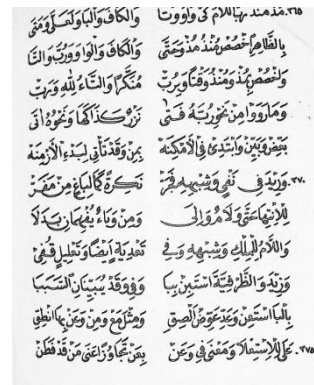 ٣٦٥ مُذْ مُنْذُ رُبَّ اللَّامُ كَيْ وَاوٌ وَتَا وَالْكَافُ وَالْبَا وَلَعَلَّ وَمَتَى
بِالظَّاهِرِ اخْصُصْ مُنْذُ مُذْ وَحَتَّى وَالْكَافَ وَالْوَاوَ وَرُبَّ وَالتَّا
وَاخْصُصْ بِمُذْ وَمُنْذُ وَقْتًا وَبِرُبْ مُنَكَّرًا وَالتَّاءُ لِلَّهِ وَرَبْ
وَمَا رَوَوْا مِنْ نَحْوِ رُبَّهُ فَتَى نَزْرٌ كَذَا كَهَا وَنَحْوُهُ أَتَى
بَعِّضْ وَبَيِّنْ وَابْتَدِئْ فِي الْأَمْكِنَهْ بِمِنْ وَقَدْ تَأْتِي لِبَدْءِ الْأَزْمِنَهْ
٣٧٠ وَزِيدَ فِي نَفْيٍ وَشِبْهِهِ فَجَرْ نَكِرَةً كَمَا لِبَاغٍ مِنْ مَفَرْ
لِلِانْتِهَا حَتَّى وَلَامٌ وَإِلَى وَمِنْ وَبَاءٌ يُفْهِمَانِ بَدَلَا
وَاللَّامُ لِلْمِلْكِ وَشِبْهِهِ وَفِي تَعْدِيَةٍ أَيْضًا وَتَعْلِيلٍ قُفِي
وَزِيدَ وَالظَّرْفِيَّةَ اسْتَبِنْ بِبَا وَفِي وَقَدْ يُبَيِّنَانِ السَّبَبَا
بِالْبَا اسْتَعِنْ وَعَدِّ عَوِّضْ أَلْصِقِ وَمِثْلَ مَعْ وَمِنْ وَعَنْ بِهَا انْطِقِ
٣٧٥ عَلَى لِلِاسْتِعْلَا وَمَعْنَى فِي وَعَنْ بِعَنْ تَجَاوُزًا عَنَى مَنْ قَدْ فَطَنْ